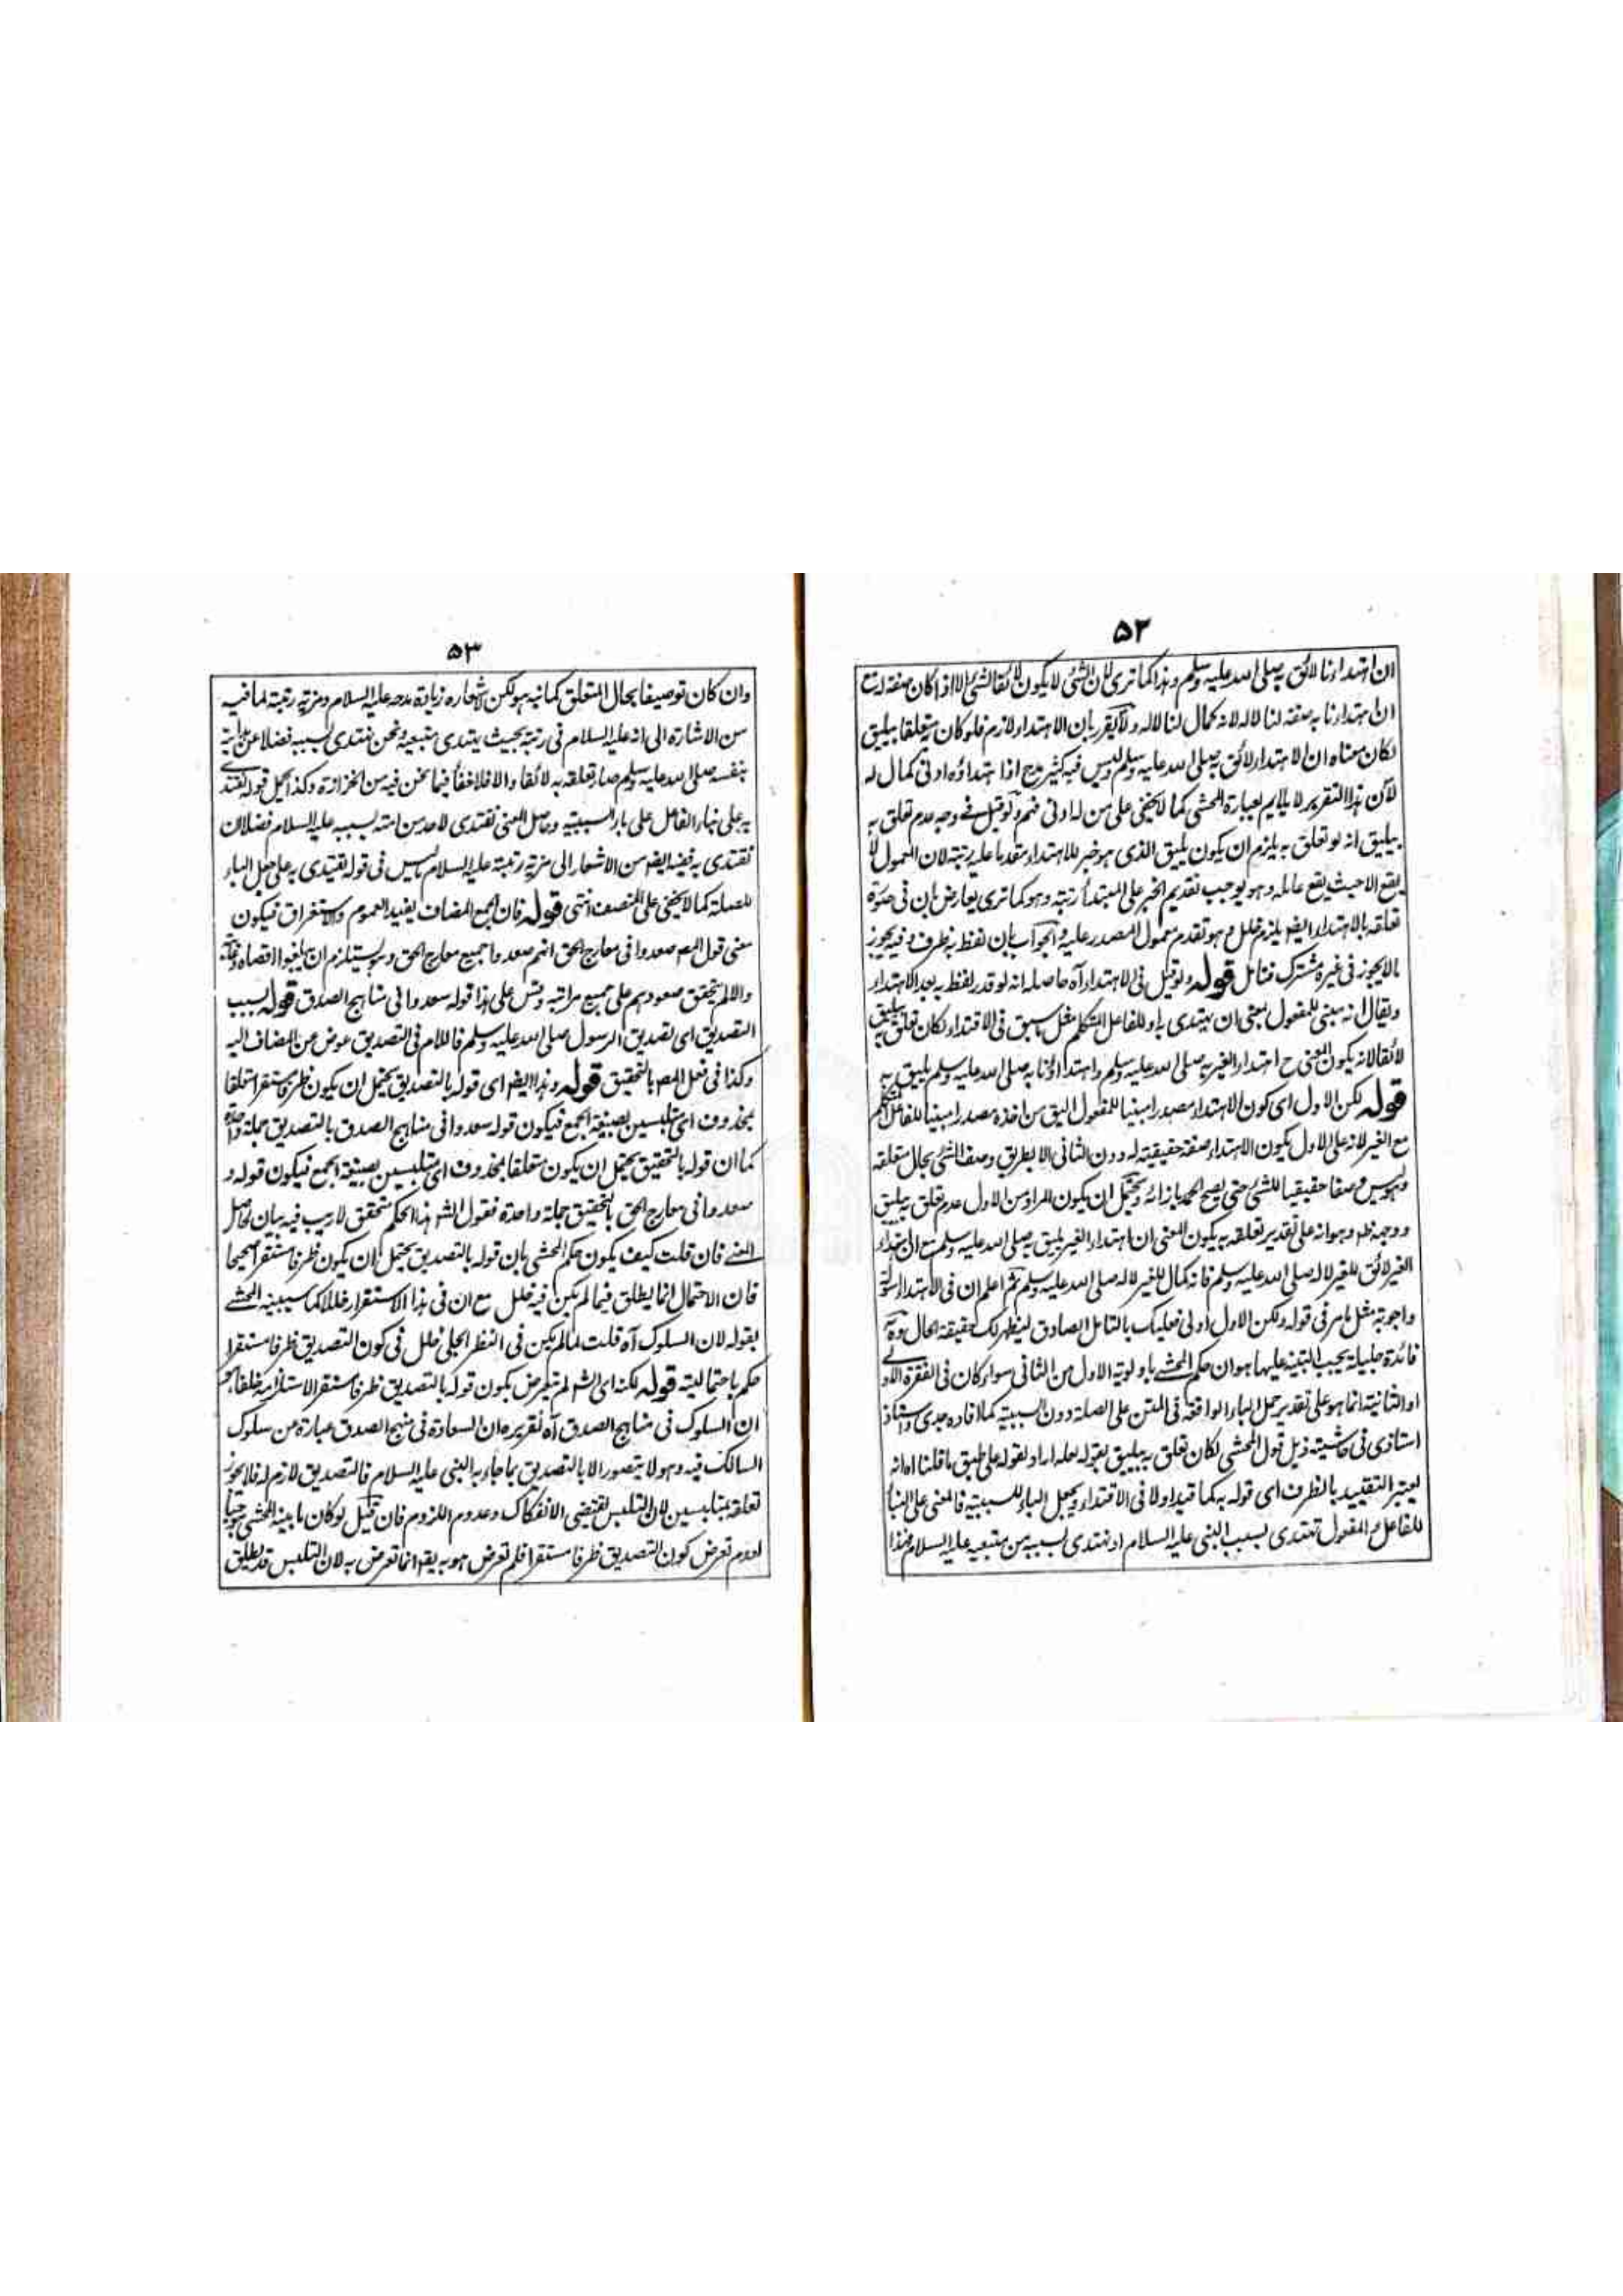 ٥٢
ان اهتداءنا لائق به صلى الله عليه وسلم وهذا كما ترى لان الشئ لا يكون لائقا لشئ الا اذا كان صفة له
ان اهتداءنا به صفة لنا لا له لانه كمال لنا لا له ولا يقرر بان الاهتداء لازم فلو كان به متعلقا بيليق
لكان معناه ان الاهتداء لائق به صلى الله عليه وسلم وليس فيه كثير مدح اذا اهتداؤه ادنى كمال له
لان هذا التقرير لا يلايم بعبارة المحشى كما لا يخفى على من له ادنى فهم ولو قيل فى وجه عدم تعلق به
بيليق انه لو تعلق به يلزم ان يكون يليق الذى هو خبر للاهتداء مقدما عليه رتبة لان المعمول لا
يقع الا حيث يقع عامله وهو يوجب تقديم الخبر على المبتدأ رتبة وهو كما ترى يعارض بان فى صورة
تعلقه بالاهتداء ايضا يلزم خلل وهو تقدم معمول المصدر عليه والجواب بان لفظ به ظرف وفيه يجوز
ما لا يجوز فى غيره مشترك فتامل قوله ولو قيل فى الاهتداء آه حاصله انه لو قدر لفظ به بعد الاهتداء
ويقال انه مبنى للمفعول بمعنى ان يهتدى به او للفاعل المتكلم مثل ما سبق فى الاقتداء لكان تعلق به بيليق
لائقا لانه يكون المعنى ح اهتداء الغير به صلى الله عليه وسلم واهتداؤنا به صلى الله عليه وسلم يليق به
قوله لكن الاول اى كون الاهتداء مصدرا مبنيا للمفعول اليق من اخذه مصدرا مبنيا للفاعل المتكلم
مع الغير لانه على الاول يكون الاهتداء صفة حقيقية له دون الثانى الا بطريق وصف الشئ بحال متعلقه
وهو ليس وصفا حقيقيا للشئ حتى يصح الحمد بازائه ويحتمل ان يكون المراد من الاول عدم تعلق به بيليق
ووجهه ظ وهو انه على تقدير تعلقه به يكون المعنى ان اهتداء الغير يليق به صلى الله عليه وسلم مع ان اهتداء
الغير لائق للغير لا له صلى الله عليه وسلم فانه كمال للغير لا له صلى الله عليه وسلم ثم اعلم ان فى الاهتداء اسولة
واجوبة مثل ما مر فى قوله ولكن الاول اولى فعليك بالتامل الصادق ليظهر لك حقيقة الحال وههنا
فائدة جليلة يجب التنبيه عليها هو ان حكم المحشى باولوية الاول من الثانى سواء كان فى الفقرة الاولى
او الثانية انما هو على تقدير حمل الباء الواقعة فى المتن على الصلة دون السببية كما افاده جدى واستاذ
استاذى فى حاشيته ذيل قول المحشى لكان تعلق به بيليق بقوله لعله اراد بقوله على طبق ما قلنا اه انه
يعتبر التقييد بالظرف اى قوله به كما قيد اولا فى الاقتداء ويجعل الباء للسببية فالمعنى على البناء
للفاعل او المفعول تهتدى بسبب النبى عليه السلام او نهتدى بسببه من متبعيه عليه السلام فهذا
٥٣
وان كان توصيفا بحال المتعلق كما نبه هو لكن لاشعاره زيادة مدحه عليه السلام ومزية رتبة لما فيه
من الاشارة الى انه عليه السلام فى رتبة بحيث يهتدى متبعيه ونحن نهتدى بسببه فضلا عن هداية
بنفسه صلى الله عليه وسلم صار تعلقه به لائقا والا فلا خفأ فيما نحن فيه من الحزازة وكذا الحل قوله يقتدى
به على بناء الفاعل على باء السببية وحاصل المعنى نقتدى لاحد من امته بسببه عليه السلام فضلا ان
نقتدى به ففيه ايضا من الاشعار الى مزية رتبة عليه السلام ما ليس فى قوله يقتدى به على جعل الباء
للصلة كما لا يخفى على المنصف انتهى قوله فان الجمع المضاف يفيد العموم والاستغراق فيكون
معنى قول المص صعدوا فى معارج الحق انهم صعدوا جميع معارج الحق وهو يستلزم ان يبلغوا اقصاه وغايته
والا لم يتحقق صعودهم على جميع مراتبه وقس على هذا قوله سعدوا فى مناهج الصدق قوله بسبب
التصديق اى تصديق الرسول صلى الله عليه وسلم فاللام فى التصديق عوض عن المضاف اليه
وكذا فى فعل المص بالتحقيق قوله وهذا ايضا اى قوله بالتصديق يحتمل ان يكون ظرفا مستقرا متعلقا
بمحذوف اى متلبسين بصيغة الجمع فيكون قوله سعدوا فى مناهج الصدق بالتصديق جملة واحدة
كما ان قوله بالتحقيق يحتمل ان يكون متعلقا بمحذوف اى متلبسين بصيغة الجمع فيكون قوله و
صعدوا فى معارج الحق بالتحقيق جملة واحدة فقول الشه هذا الحكم متحقق لا ريب فيه بيان لحاصل
المعنى فان قلت كيف يكون حكم المحشى بان قوله بالتصديق يحتمل ان يكون ظرفا مستقرا صحيحا
فان الاحتمال انما يطلق فيما لم يكن فيه خلل مع ان فى هذا الاستقرار خللا كما سيبينه المحشى
بقوله لان السلوك آه قلت لما لم يكن فى النظر الجلى خلل فى كون التصديق ظرفا مستقرا
حكم باحتماليته قوله لكنه اى الشه لم يتعرض بكون قوله بالتصديق ظرفا مستقرا لاستلزامه خلفا
ان السلوك فى مناهج الصدق آه تقريره ان السعادة فى منهج الصدق عبارة عن سلوك
السالك فيه وهو لا يتصور الا بالتصديق بما جاء به النبى عليه السلام فالتصديق لازم له فلا يجوز
تعلقه بمتلبسين لان التلبس يقتضى الانفكاك وعدم اللزوم فان قيل لو كان ما بينه المحشى موجبا
لعدم تعرض كون التصديق ظرفا مستقرا فلم تعرض هو به يقه انما تعرض به لان التلبس قد يطلق